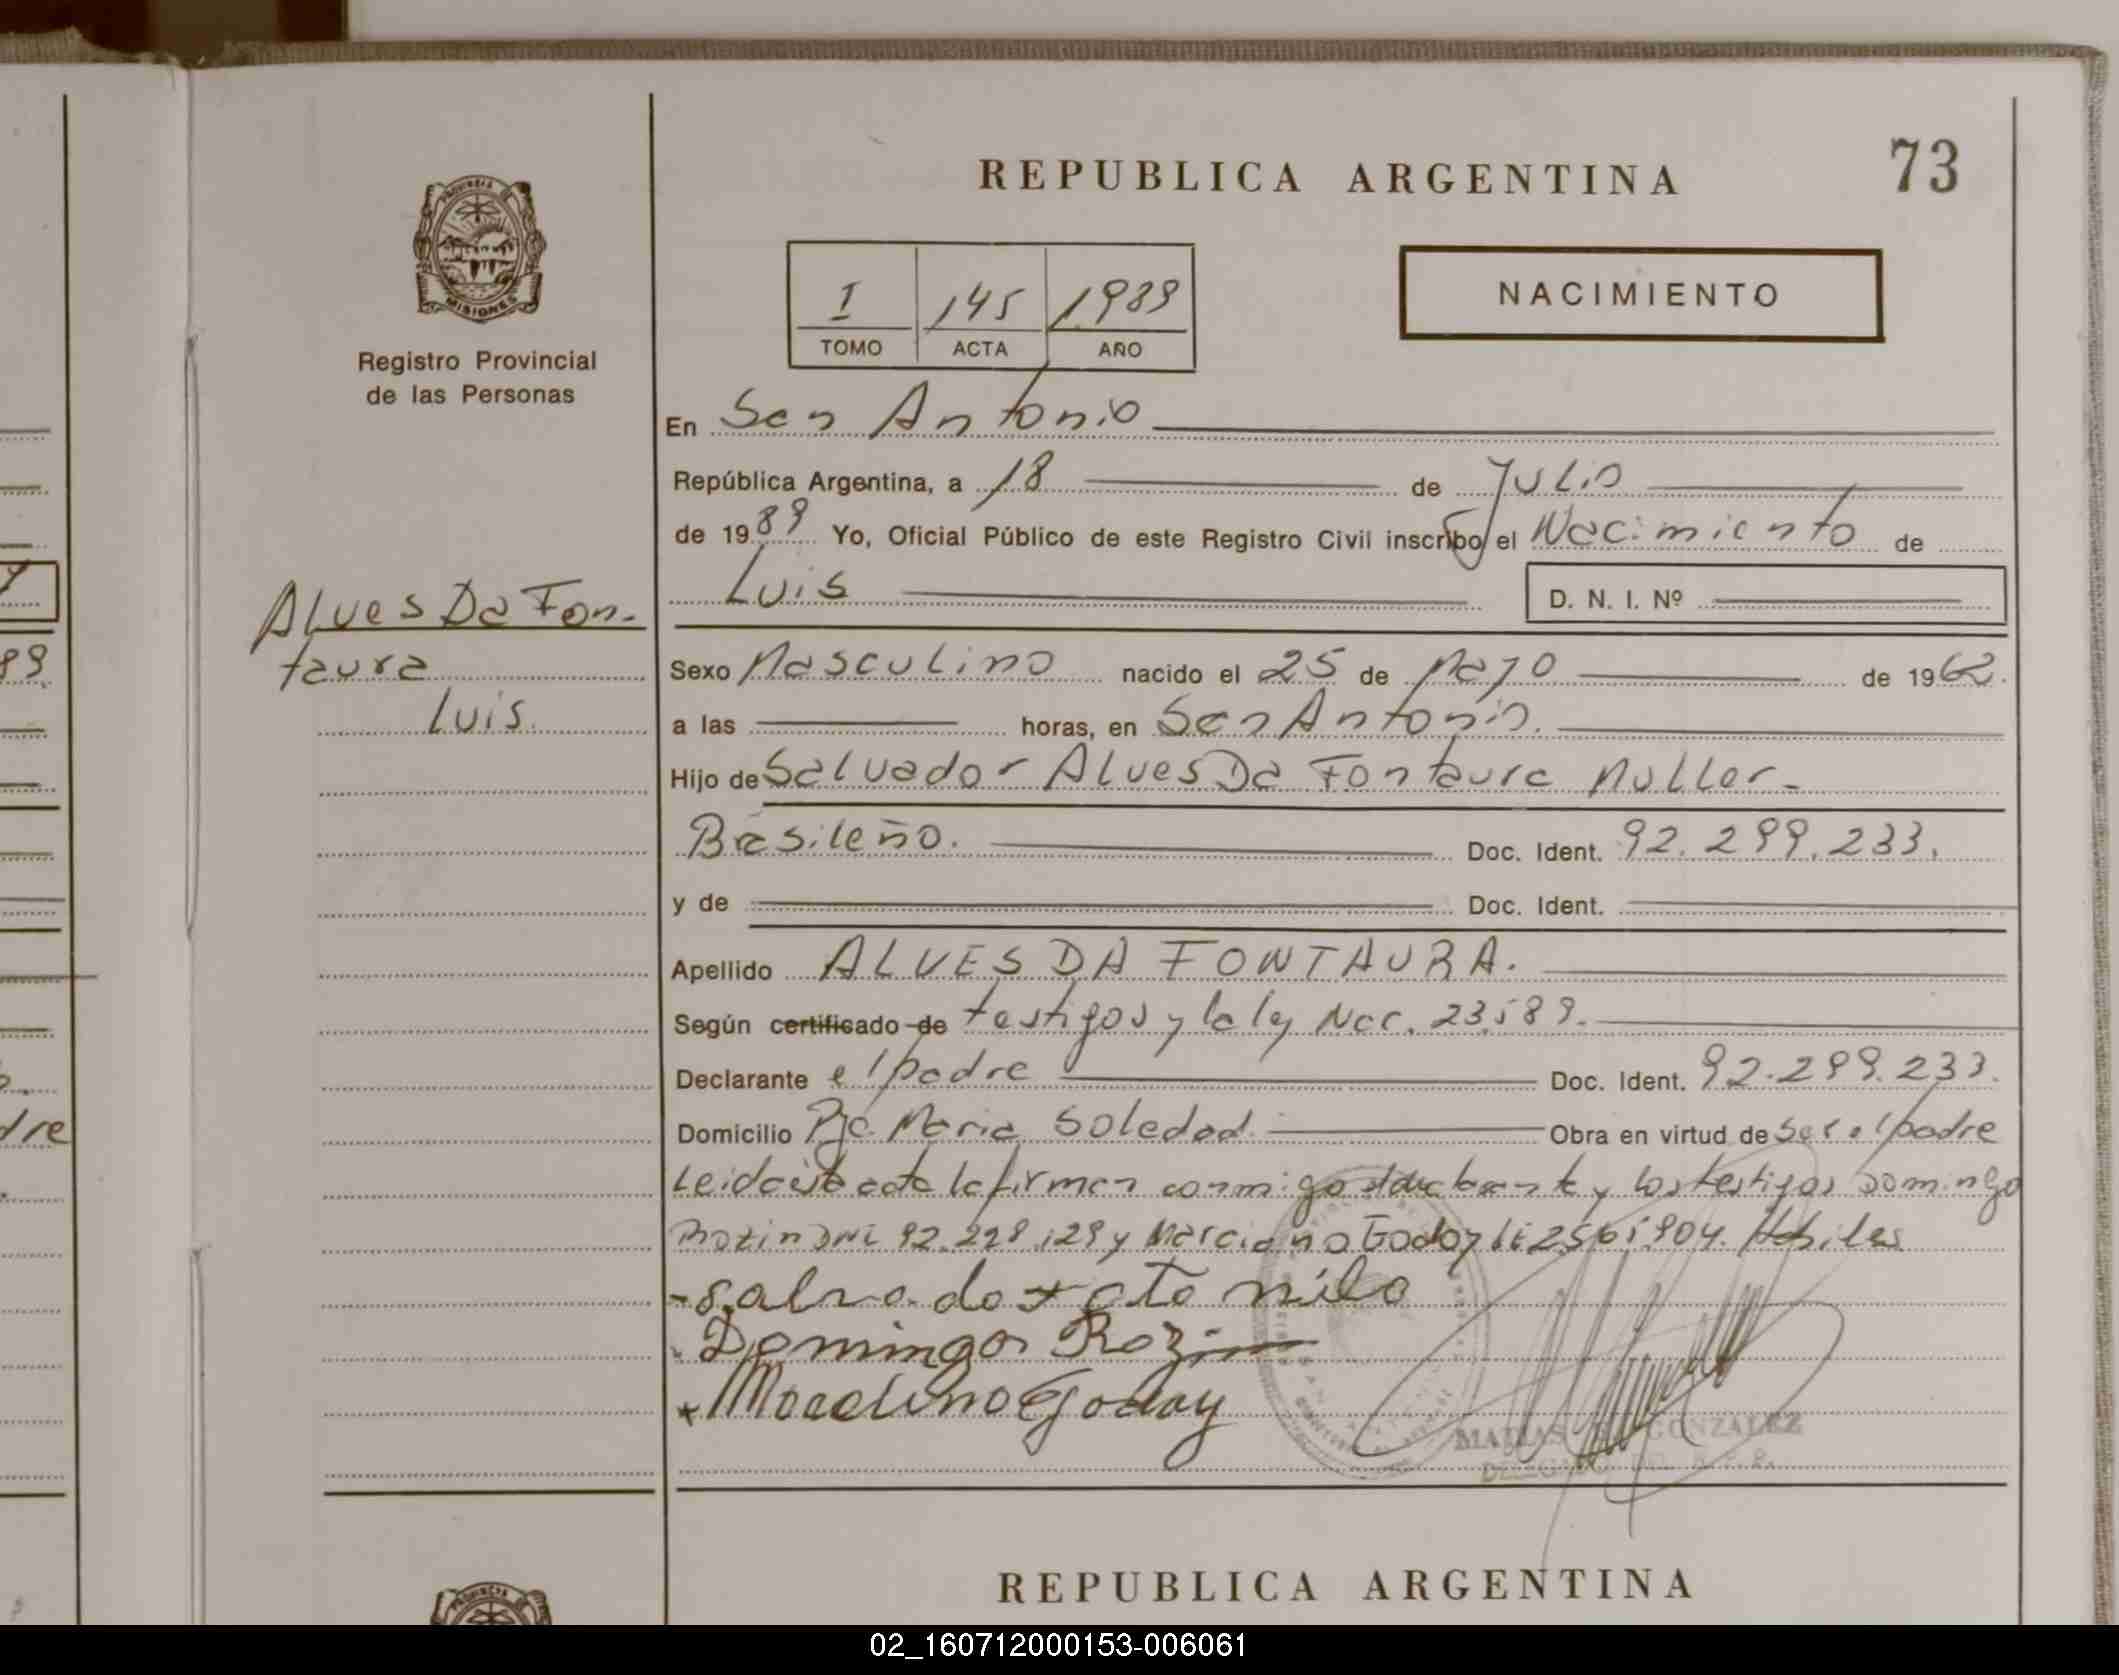 REPUBLICA ARGENTINA
73
PROVINCIA DE
MISIONES
Registro Provincial
de las Personas
I 145 1989
TOMO ACTA AÑO
NACIMIENTO
En San Antonio
República Argentina, a 18 de Julio
de 1989 Yo, Oficial Público de este Registro Civil inscribo el Nacimiento de
Luis
D. N. I. Nº
Alves Da Fon-
taura
Luis.
Sexo Masculino nacido el 25 de Mayo de 1962.
a las horas, en San Antonio.
Hijo de Salvador Alves Da Fontaura Muller-
Basileño. Doc. Ident. 92.299.233.
y de Doc. Ident.
Apellido ALVES DA FONTAURA.
Según certificado de testigos y la ley Nac. 23.589.
Declarante el padre Doc. Ident. 92.299.233.
Domicilio Pje. Maria Soledad. Obra en virtud de ser el padre
Leida este acta la firman conmigo y los testigos Domingo
Rozin DNI 92. y Marciano Godoy Habiles
Domingo Rozin
Godoy
GONZALEZ
DELEGADO
REPUBLICA ARGENTINA
PROVINCIA
dre
02_160712000153-006061